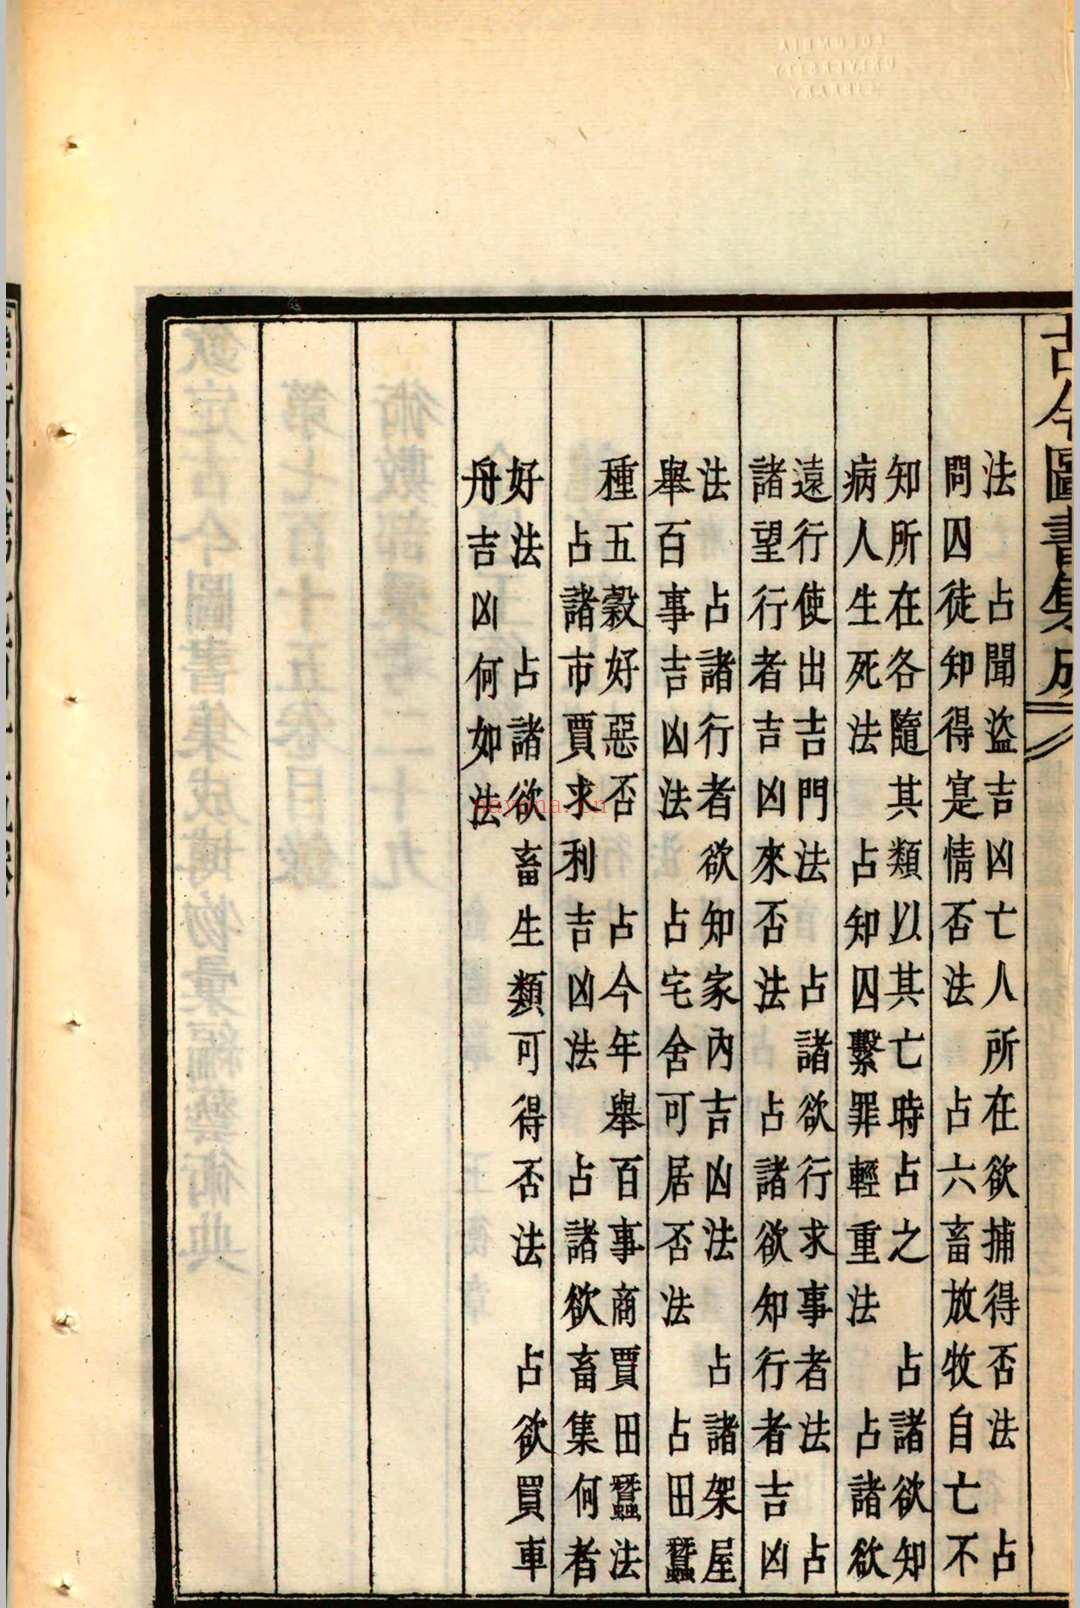 古今圖書集成
法 占聞盜吉凶亡人所在欲捕得否法 占
問囚徒知得寔情否法 占六畜放牧自亡不
知所在各隨其類以其亡時占之 占諸欲知
病人生死法 占知囚繫罪輕重法 占諸欲
遠行使出吉門法 占諸欲行求事者法 占
諸望行者吉凶來否法 占諸欲知行者吉凶
法 占諸行者欲知家內吉凶法 占諸架屋
舉百事吉凶法 占宅舍可居否法 占田蠶
種五穀好惡否 占今年舉百事商賈田蠶法
占諸市賈求利吉凶法 占諸欲畜集何者
好法 占諸欲畜生類可得否法 占欲買車
舟吉凶何如法